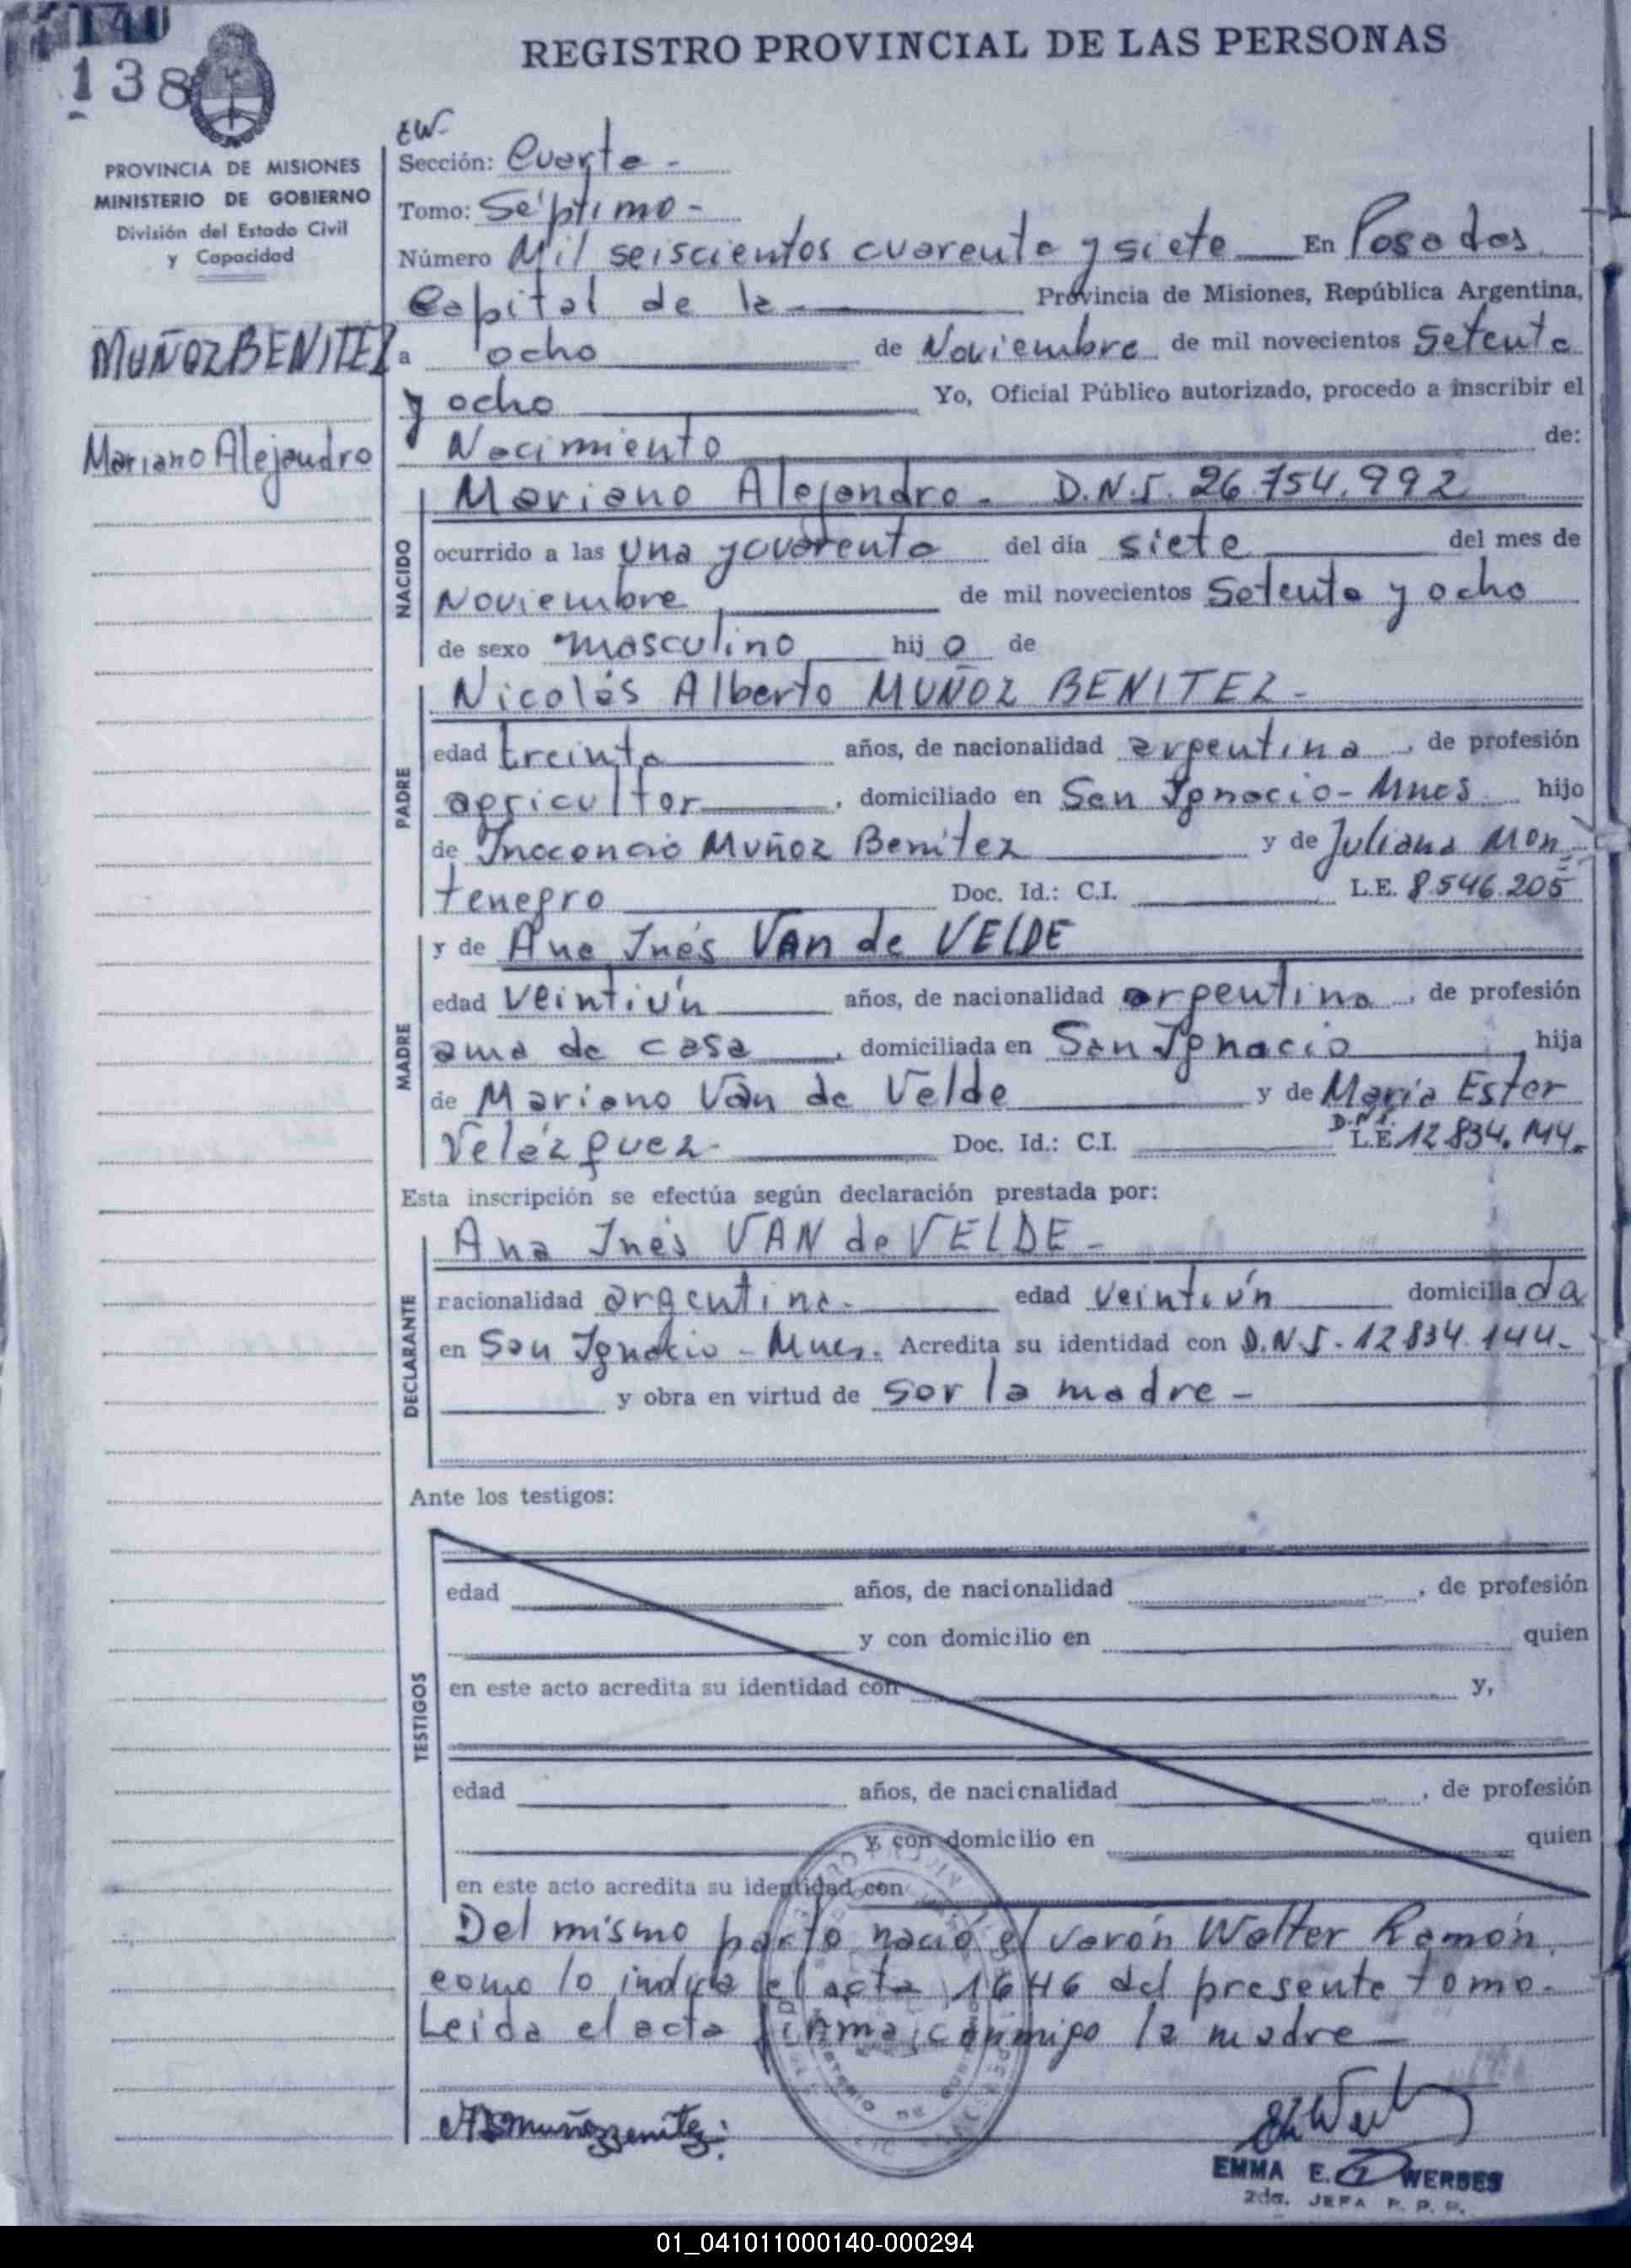 140
138
REGISTRO PROVINCIAL DE LAS PERSONAS
PROVINCIA DE MISIONES
MINISTERIO DE GOBIERNO
División del Estado Civil
y Capacidad
MUÑOZ BENITEZ
Mariano Alejandro
EW-
Sección: Cuarta -
Tomo: Séptimo -
Número Mil seiscientos cuarenta y siete En Posadas,
Capital de la Provincia de Misiones, República Argentina,
a ocho de Noviembre de mil novecientos Setenta
y ocho Yo, Oficial Público autorizado, procedo a inscribir el
Nacimiento de:
NACIDO
Mariano Alejandro - D.N.I. 26.754.992
ocurrido a las Una y cuarenta del día siete del mes de
Noviembre de mil novecientos Setenta y ocho
de sexo masculino hij o de
PADRE
Nicolás Alberto MUÑOZ BENITEZ -
edad treinta años, de nacionalidad argentina, de profesión
agricultor, domiciliado en San Ignacio - Mnes hijo
de Inocencio Muñoz Benitez y de Juliana Mon
tenegro Doc. Id.: C.I. L.E. 8.546.205
MADRE
y de Ana Inés VAN de VELDE
edad veintiún años, de nacionalidad argentina, de profesión
ama de casa, domiciliada en San Ignacio, hija
de Mariano Van de Velde y de María Ester
Velázquez - Doc. Id.: C.I. D.N.I. L.E 12.834.144.
Esta inscripción se efectúa según declaración prestada por:
DECLARANTE
Ana Inés VAN de VELDE -
racionalidad argentina. edad veintiún domicilia da
en San Ignacio - Mnes. Acredita su identidad con D.N.I. 12.834.144 -
y obra en virtud de ser la madre -
Ante los testigos:
TESTIGOS
edad años, de nacionalidad , de profesión
y con domicilio en quien
en este acto acredita su identidad con y,
edad años, de nacicnalidad , de profesión
y con domicilio en quien
en este acto acredita su identidad con
Del mismo parto nació el varón Walter Ramón,
como lo indica el acta 1646 del presente tomo.
Leida el acta firma conmigo la madre
EMMA E. WERBES
2da. JEFA R. P. P.
01_041011000140-000294